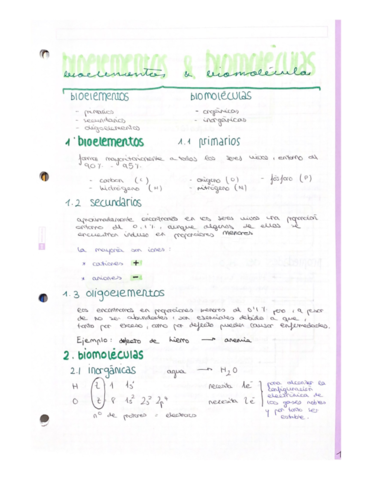 bioelementos & biomoléculas
bioelementos
- primarios
- secundarios
- oligoelementos
biomoléculas
- orgánicas
- inorgánicas
1. bioelementos
1.1 primarios
forman mayoritariamente a todos los seres vivos, entorno al
90% - 95%
- carbon (C)
- hidrógeno (H)
- oxígeno (O)
- nitrógeno (N)
- fósforo (P)
1.2 secundarios
aproximadamente encontramos en los seres vivos una proporción
entorno al 0,1%, aunque algunos de ellos
encuentran incluso en proporciones menores
la mayoría son iones:
• cationes +
• aniones -
1.3 oligoelementos
los encontramos en proporciones menores al 0'1% pero, a pesar
de no ser abundantes, son esenciales debido a que,
tanto por exceso, como por defecto pueden causar enfermedades.
Ejemplo: defecto de hierro → anemia
2. biomoléculas
2.1 inorgánicas
agua → H2O
H 1 1s1 necesita 1e-
O 8 1s2 2s2 2p4 necesita 2e-
nº de protones = electrones
para alcanzar la
configuración
electrónica de
los gases nobles
y por tanto ser
estable.